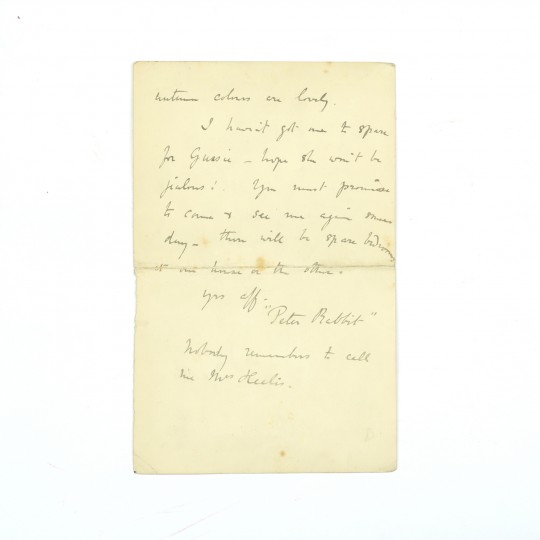 autumn colours are lovely.
I haven't got one to spare
for Gussie - hope she won't be
jealous! You must promise
to come & see me again some
day - there will be spare bedrooms
at one house or the other.
yrs aff.
"Peter Rabbit"
Nobody remembers to call
me Mrs Heelis.